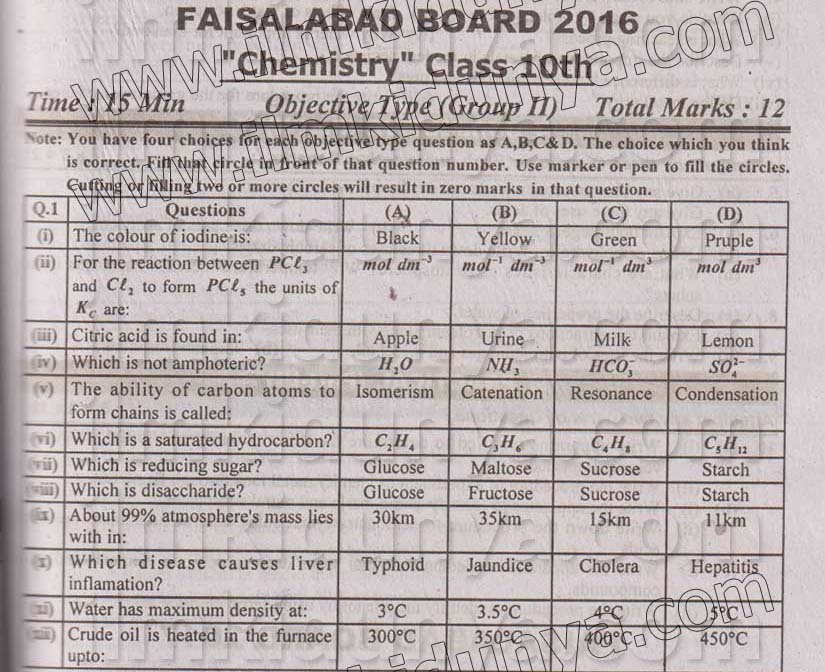 FAISALABAD BOARD 2016
"Chemistry" Class 10th
Time : 15 Min Objective Type (Group II) Total Marks : 12
Note: You have four choices for each objective type question as A,B,C& D. The choice which you think
is correct. Fill that circle in front of that question number. Use marker or pen to fill the circles.
Cutting or filling two or more circles will result in zero marks in that question.
Q.1 Questions (A) (B) (C) (D)
(i) The colour of iodine is: Black Yellow Green Pruple
(ii) For the reaction between PCℓ₃ mol dm⁻³ mol⁻¹ dm⁻³ mol⁻¹ dm³ mol dm³
and Cℓ₂ to form PCℓ₅ the units of
K_C are:
(iii) Citric acid is found in: Apple Urine Milk Lemon
(iv) Which is not amphoteric? H₂O NH₃ HCO₃⁻ SO₄²⁻
(v) The ability of carbon atoms to Isomerism Catenation Resonance Condensation
form chains is called:
(vi) Which is a saturated hydrocarbon? C₂H₄ C₃H₆ C₄H₈ C₅H₁₂
(vii) Which is reducing sugar? Glucose Maltose Sucrose Starch
(viii) Which is disaccharide? Glucose Fructose Sucrose Starch
(ix) About 99% atmosphere's mass lies 30km 35km 15km 11km
with in:
(x) Which disease causes liver Typhoid Jaundice Cholera Hepatitis
inflamation?
(xi) Water has maximum density at: 3°C 3.5°C 4°C 5°C
(xii) Crude oil is heated in the furnace 300°C 350°C 400°C 450°C
upto:
www.ilmkidunya.com
www.ilmkidunya.com
ilmkidunya.com